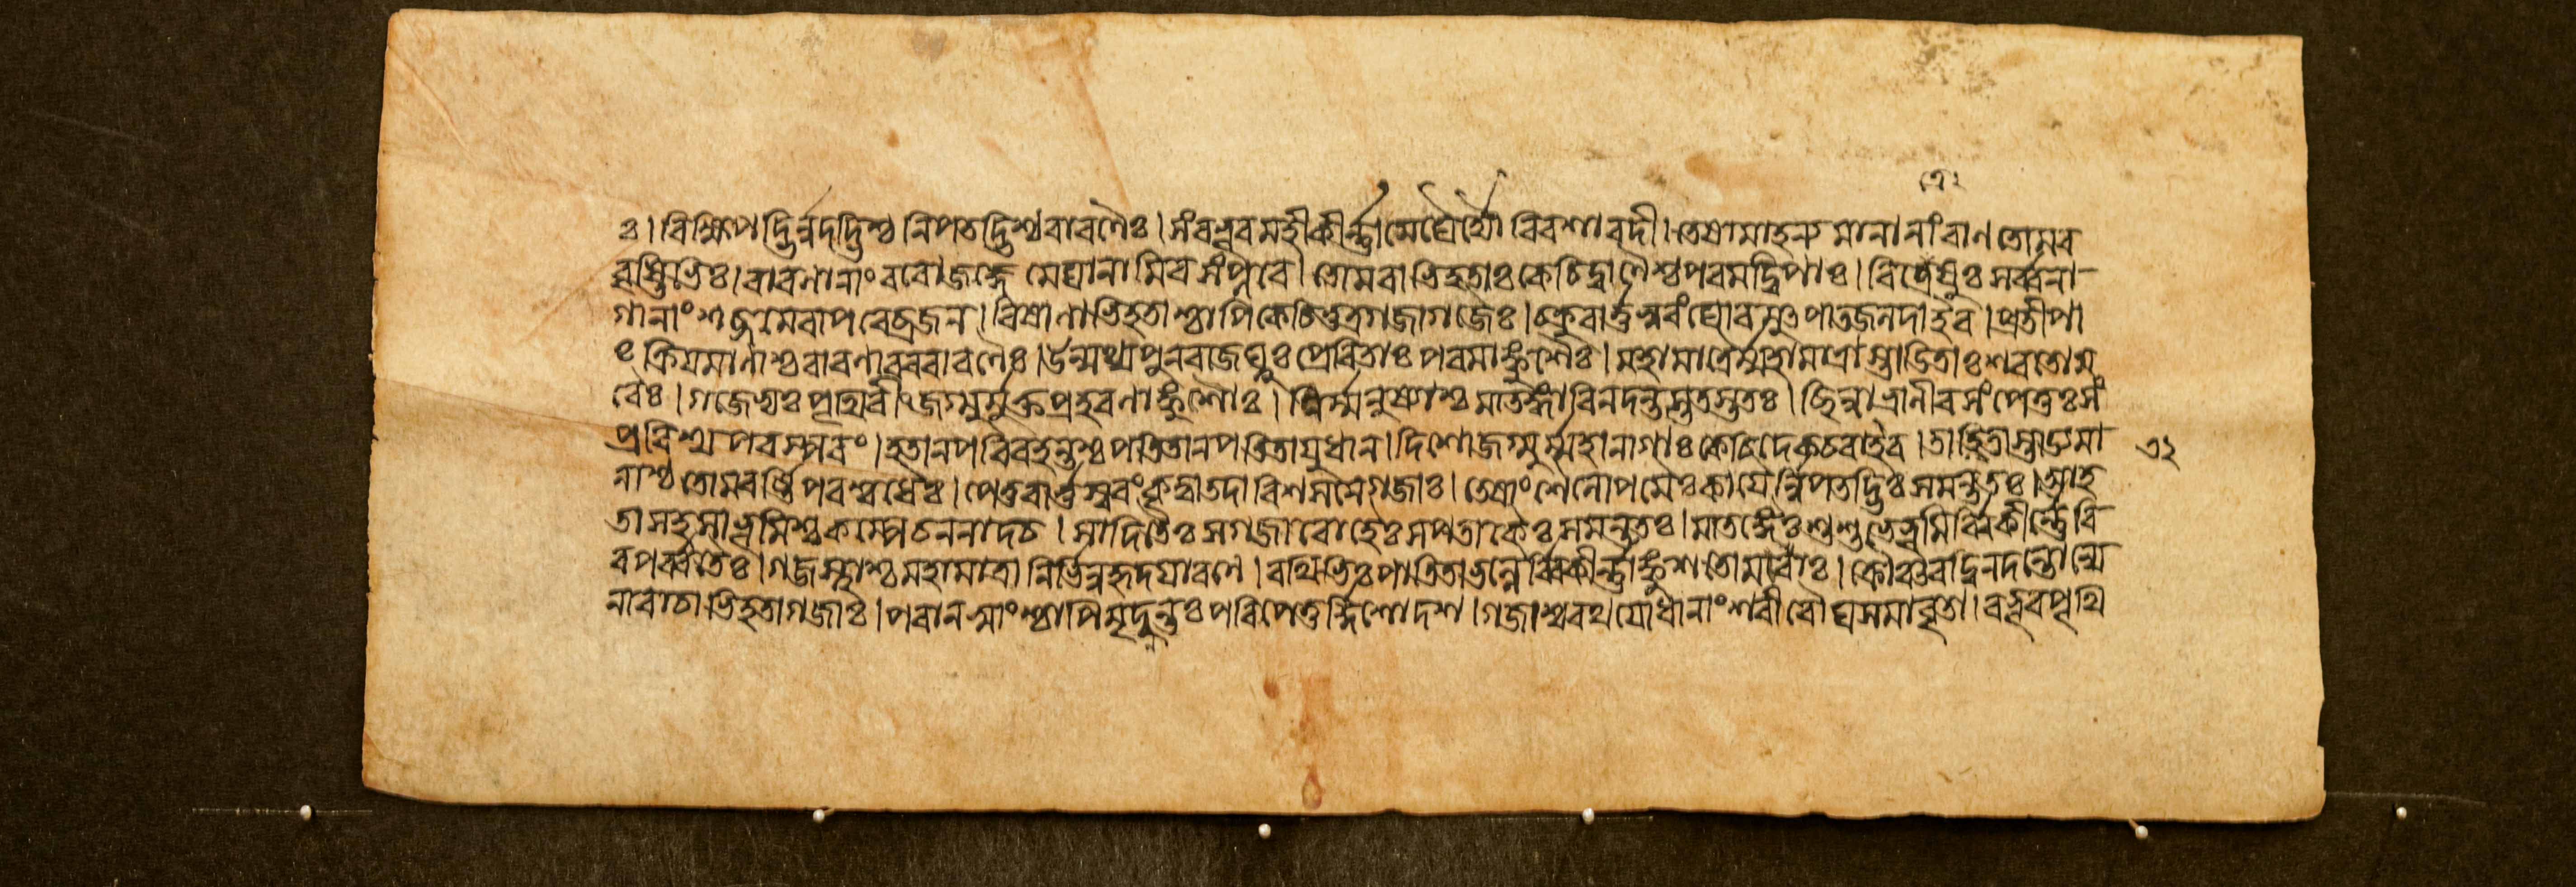 ঃ। বিক্ষিপদ্ভির্ন্নদদ্ভিশ্চ নিপতদ্ভিশ্চ বারণৈঃ। সংবভূব মহীকীর্ন্না মেঘৈর্দ্যৌরিব শারদী। তেষামাহন্যমানানাং বাণতোমর
বৃষ্টিভিঃ। বারণানাং রবো জজ্ঞে মেঘানামিব সংপ্লবে। তোমরাভিহতাঃ কেচিদ্বাণৈশ্চ পরমদ্বিপাঃ। বিত্রেসুঃ সর্ব্বনা
গানাং শব্দমেবাপরেব্রজন। বিষাণাভিহতাশ্চাপি কেচিত্তত্রগজাগজৈঃ। চক্রুরার্ত্তস্বরং ঘোরমুৎপাতজলদাইব। প্রতীপা
ং হ্রিয়মাণাশ্চ বারণাবরবারণৈঃ। উন্মথ্য পুনরাজহ্রুঃ প্রেরিতাঃ পরমাঙ্কুশৈঃ। মহামাত্রৈর্ম্মহামাত্রাস্তাডিতাঃ শরতোম
রৈঃ। গজেভ্যঃ পৃথিবীং জগ্মুর্মুক্তপ্রহরণাঙ্কুশাঃ। নির্ম্মনুষ্যাশ্চ মাতঙ্গা বিনদন্তস্ততস্ততঃ। ছিন্নাভ্রানীব সংপেতুঃ সং
প্রবিশ্য পরস্পরং। হতানপরিবহন্তশ্চ পতিতানপতিতায়ুধান। দিশো জগ্মুর্ম্মহানাগাঃ কেচিদেকচরাইব। তাডিতাস্তাড্যমা
নাশ্চ তোমরর্ষ্টিপরশ্বধৈঃ। পেতুরার্ত্তস্বরং কৃত্বা তদা বিশসনে গজাঃ। তেষাং শৈলোপমৈঃ কায়ৈর্ন্নিপতদ্ভিঃ সমন্ততঃ। আহ
তা সহসা ভূমিশ্চকম্পে চ ননাদ চ। সাদিতৈঃ সগজারোহৈঃ সপতাকৈঃ সমন্ততঃ। মাতঙ্গৈঃ শুশুভে ভূমির্বিকীর্ন্নৈরি
ব পর্ব্বতৈঃ। গজস্থাশ্চ মহামাত্রা নির্ভিন্নহৃদয়া রণে। রথিভিঃ পাতিতা ভল্লৈর্বিকীর্ন্নাঙ্কুশতোমরাঃ। ক্রৌঞ্চবদ্বিনদন্তোন্যে
নারাচাভিহতা গজাঃ। পরানস্বাংশ্চাপি মৃদ্নন্তঃ পরিপেতুর্দ্দিশো দশ। গজাশ্বরথয়োধানাং শরীরৌঘসমাবৃতা। বভূব পৃথি